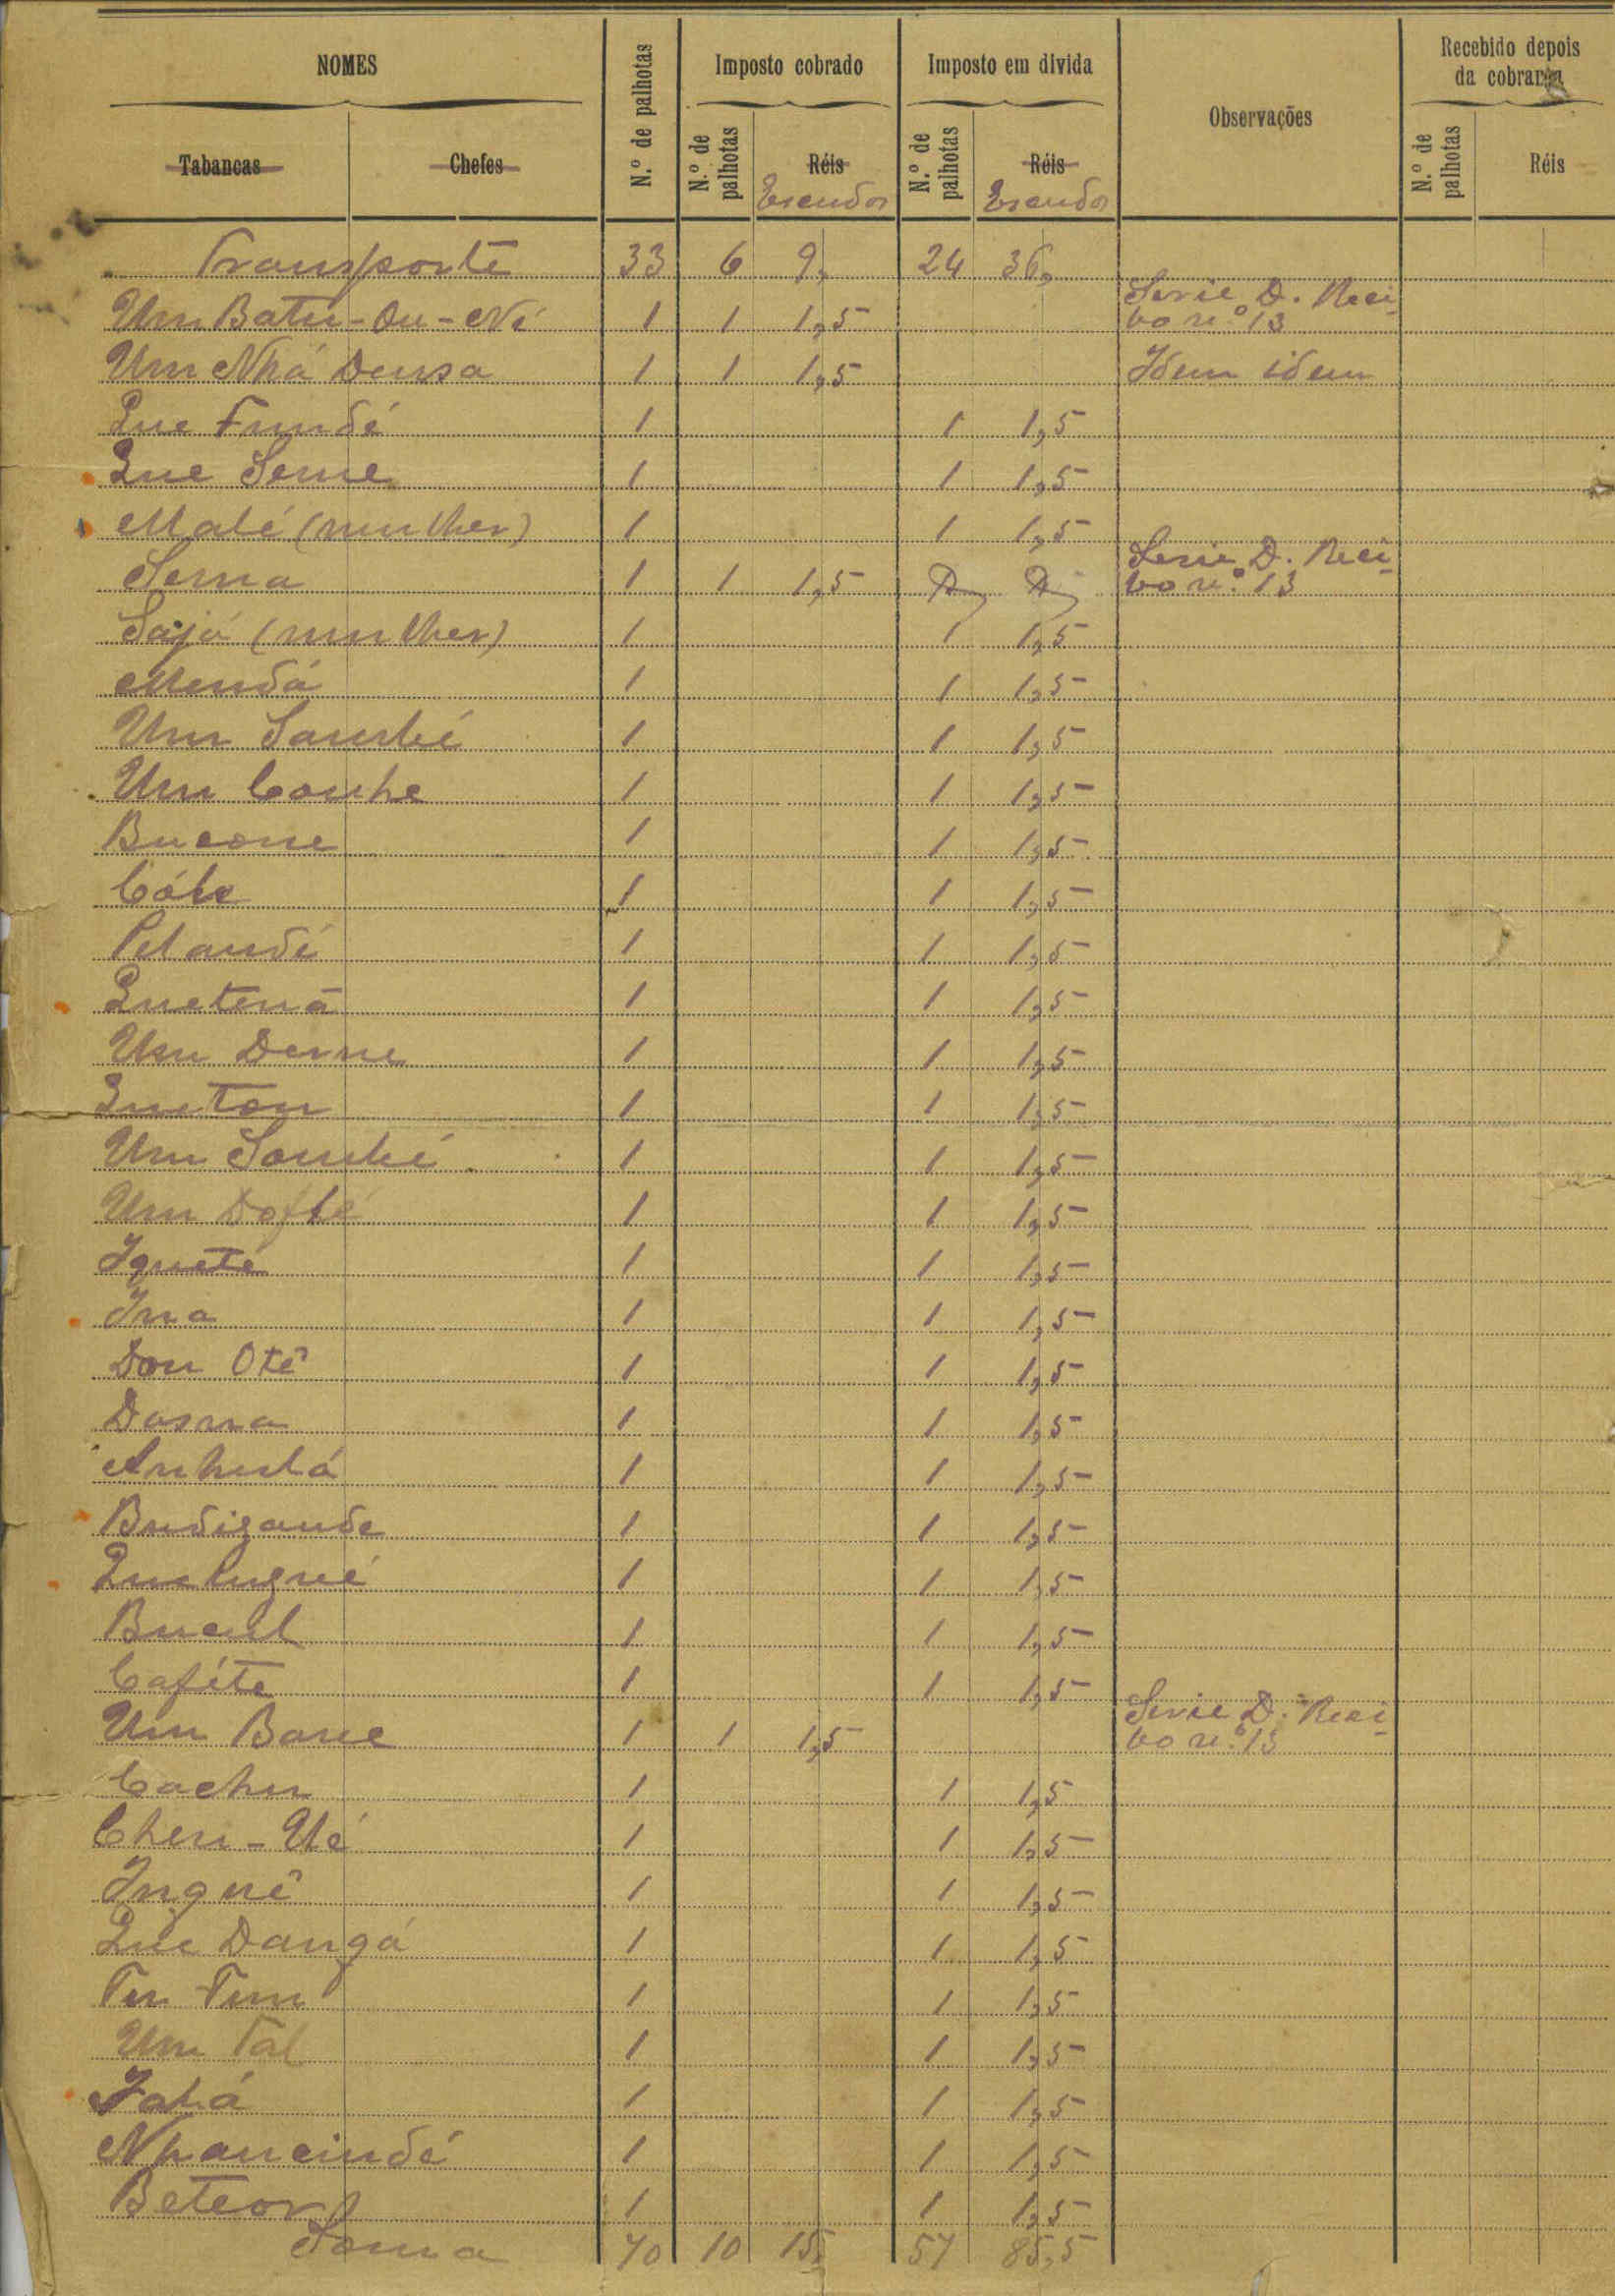 NOMES N.º de palhotas Imposto cobrado Imposto em divida Observações Recebido depois da cobrança
Tabancas Chefes N.º de palhotas Réis N.º de palhotas Réis N.º de palhotas Réis
Escudos Escudos
Transporte 33 6 9, 24 36,
Um Batu-Ou-Ni 1 1 1,5 Serie D. Reci-
bo n.º 13
Um Nhá Densa 1 1 1,5 Idem idem
Que Fundé 1 1 1,5
Que Seme 1 1 1,5
Malé (mulher) 1 1 1,5
Sema 1 1 1,5 Serie D. Reci-
bo n.º 13
Sajá (mulher) 1 1 1,5
Mendá 1 1 1,5
Um Sambé 1 1 1,5
Um Conhe 1 1 1,5
Bucone 1 1 1,5
Cóle 1 1 1,5
Pelandé 1 1 1,5
Quetená 1 1 1,5
Um Deme 1 1 1,5
Queton 1 1 1,5
Um Sambé 1 1 1,5
Um 1 1 1,5
Igueté 1 1 1,5
Ina 1 1 1,5
Don Oté 1 1 1,5
Dasma 1 1 1,5
Anhulá 1 1 1,5
Budigande 1 1 1,5
1 1 1,5
Bucul 1 1 1,5
Caféte 1 1 1,5
Um Bane 1 1 1,5 Serie D. Reci-
bo n.º 13
Cachu 1 1 1,5
Chen-Ué 1 1 1,5
Ingué 1 1 1,5
Que Dangá 1 1 1,5
1 1 1,5
Um Tal 1 1 1,5
1 1 1,5
Nhancindé 1 1 1,5
Beteor 1 1 1,5
Soma 70 10 15, 57 85,5